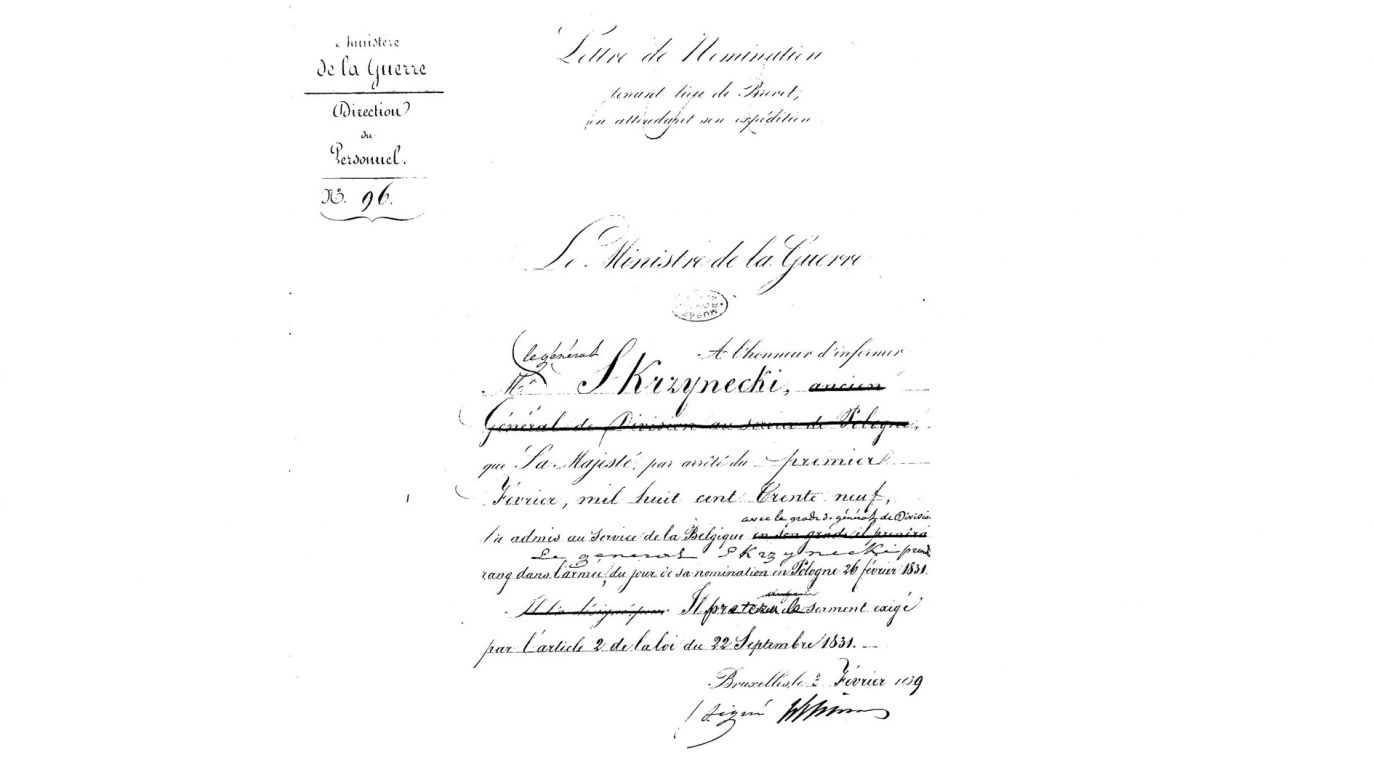 Ministère
de la Guerre
Direction
du
Personnel.
N°. 96.
Lettre de Nomination
tenant lieu de Brevet,
en attendant son expédition
Le Ministre de la Guerre
le général
A l'honneur d'informer
Mr Skrzynecki, ancien
Général de Division au service de Pologne,
que Sa Majesté, par arrêté du premier
Février, mil huit cent Trente neuf,
avec le grade de général de Division
l'a admis au service de la Belgique en son grade il prendra
Le général Skrzynecki prend
rang dans l'armée, du jour de sa nomination en Pologne 26 février 1831.
Il l'a désigné pour Il pretera le serment exigé
par l'article 2 de la loi du 22 Septembre 1831.
Bruxelles, le 2 Février 1839
signé